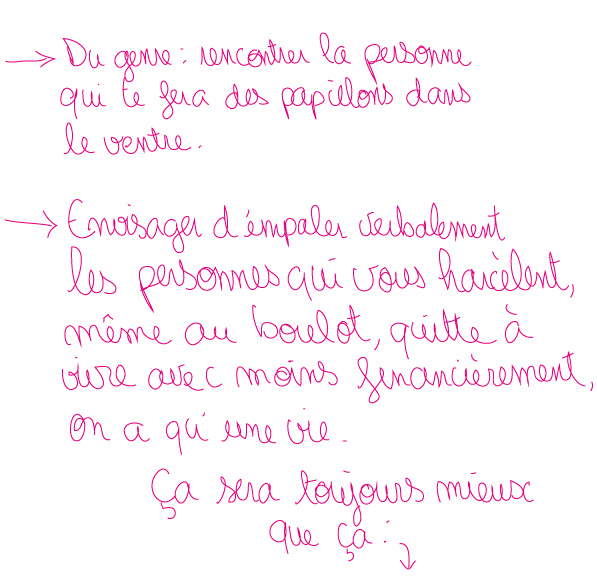 → Du genre : rencontrer la personne
qui te fera des papillons dans
le ventre.
→ Envisager d'empaler verbalement
les personnes qui vous harcèlent,
même au boulot, quitte à
vivre avec moins financièrement,
on a qu'une vie.
Ça sera toujours mieux
que ça :
↓